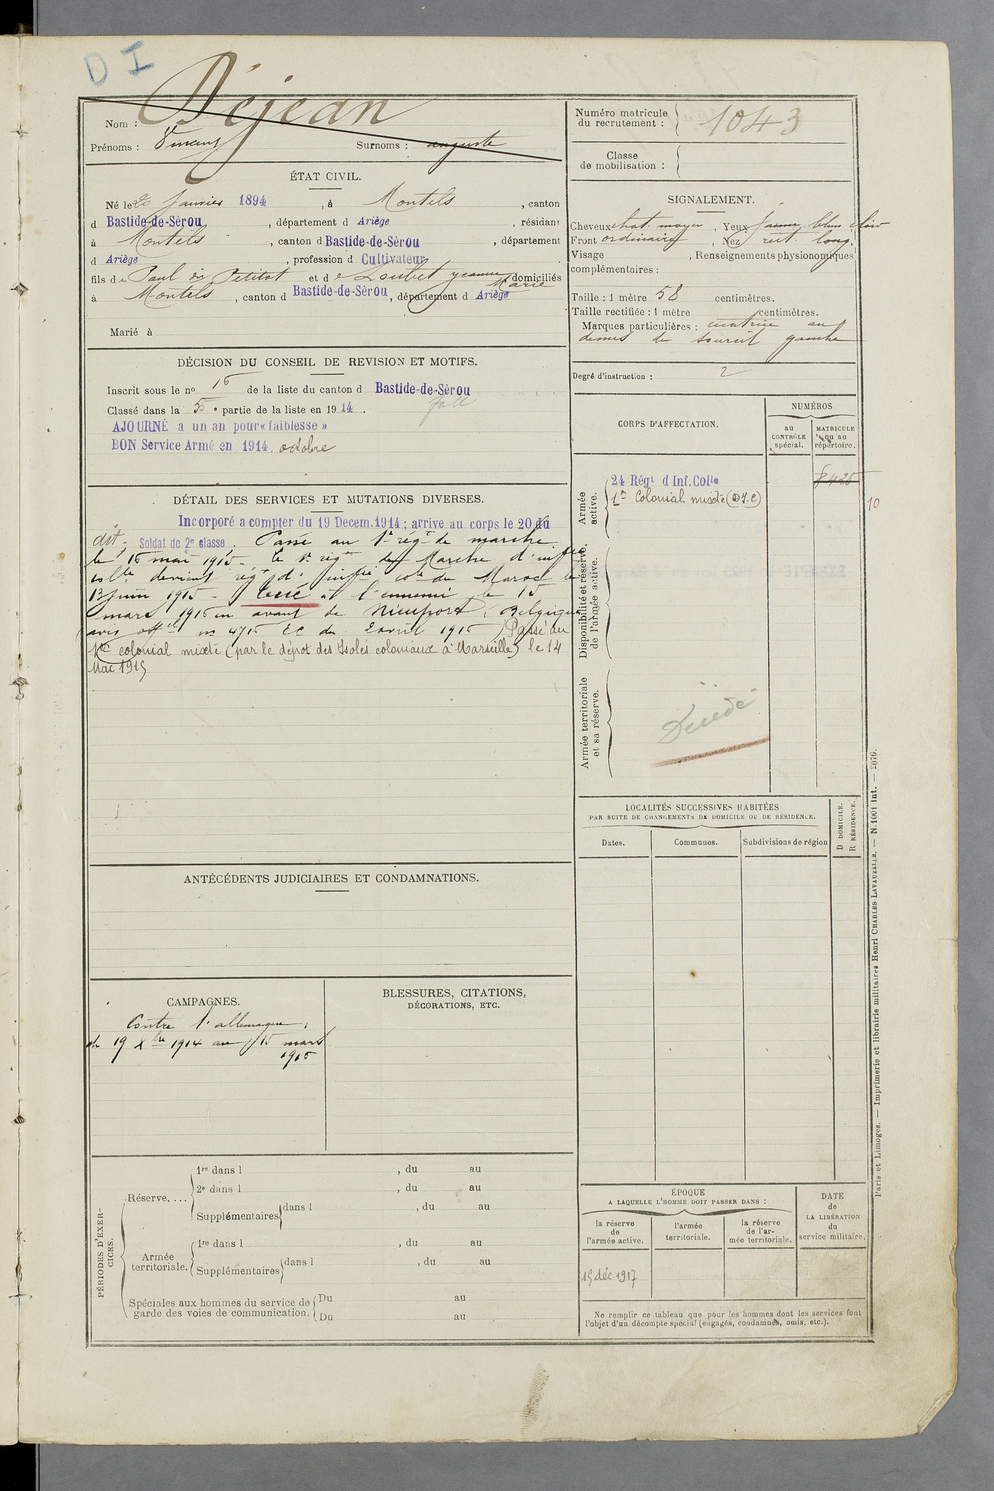 D I
Nom : Déjean
Prénoms : Vincent Surnoms : auguste
Numéro matricule du recrutement : 1043
Classe de mobilisation :
ÉTAT CIVIL.
Né le 20 Janvier 1894, à Montels, canton
d Bastide-de-Sérou, département d Ariège, résidant
à Montels, canton d Bastide-de-Sérou, département
d Ariège, profession d Cultivateur
fils de Paul dit Petitot et de Loubet Jeanne Marie domiciliés
à Montels, canton d Bastide-de-Sérou, département d Ariège
Marié à
SIGNALEMENT.
Cheveux chat. moyen, Yeux jaune bleu clair
Front ordinaire, Nez rect. long,
Visage , Renseignements physionomiques
complémentaires :
Taille : 1 mètre 58 centimètres.
Taille rectifiée : 1 mètre centimètres.
Marques particulières : cicatrice au
dessus du sourcil gauche
Degré d'instruction : 2
DÉCISION DU CONSEIL DE REVISION ET MOTIFS.
Inscrit sous le no 16 de la liste du canton d Bastide-de-Sérou
Classé dans la 5e partie de la liste en 1914.
AJOURNÉ a un an pour «faiblesse»
BON Service Armé en 1914. octobre
DÉTAIL DES SERVICES ET MUTATIONS DIVERSES.
Incorporé a compter du 19 Decem. 1914 ; arrive au corps le 20 du
dit ; Soldat de 2e classe. Passé au 1er régt de marche
le 16 mai 1915. Le 1er régt de Marche d'infie
colle devient régt d'infie cole du Maroc le
13 juin 1915. Tué à l'ennemi le 15
mars 1916 en avant de Nieuport (Belgique
avis offel no 4715 EC du 2 avril 1916) Passé au
1er colonial mixte (par le dépot des Isolés coloniaux à Marseille) le 14
Mai 1915
CORPS D'AFFECTATION.
NUMÉROS
au CONTRÔLE spécial.
MATRICULE ou au répertoire.
Armée active.
24 Régt d Inf. Colle
1er Colonial mixte (D.I.C)
8425
10
Disponibilité et réserve de l'armée active.
Armée territoriale et sa réserve.
Décédé
LOCALITÉS SUCCESSIVES HABITÉES
PAR SUITE DE CHANGEMENTS DE DOMICILE OU DE RÉSIDENCE.
Dates. Communes. Subdivisions de région
D DOMICILE.
R RÉSIDENCE.
ANTÉCÉDENTS JUDICIAIRES ET CONDAMNATIONS.
CAMPAGNES.
Contre l'allemagne,
du 19 Xbre 1914 au 15 mars
1916
BLESSURES, CITATIONS,
DÉCORATIONS, ETC.
PÉRIODES D'EXERCICES.
Réserve....
1re dans l , du au
2e dans l , du au
Supplémentaires dans l , du au
Armée territoriale.
1re dans l , du au
Supplémentaires dans l , du au
Spéciales aux hommes du service de garde des voies de communication.
Du au
Du au
ÉPOQUE
A LAQUELLE L'HOMME DOIT PASSER DANS :
la réserve de l'armée active.
l'armée territoriale.
la réserve de l'armée territoriale.
DATE de LA LIBÉRATION du service militaire.
19 déc 1917
Ne remplir ce tableau que pour les hommes dont les services font
l'objet d'un décompte spécial (engagés, condamnés, omis, etc.).
Paris et Limoges. — Imprimerie et librairie militaires Henri CHARLES-LAVAUZELLE. — N. 1001 int. — 2076.